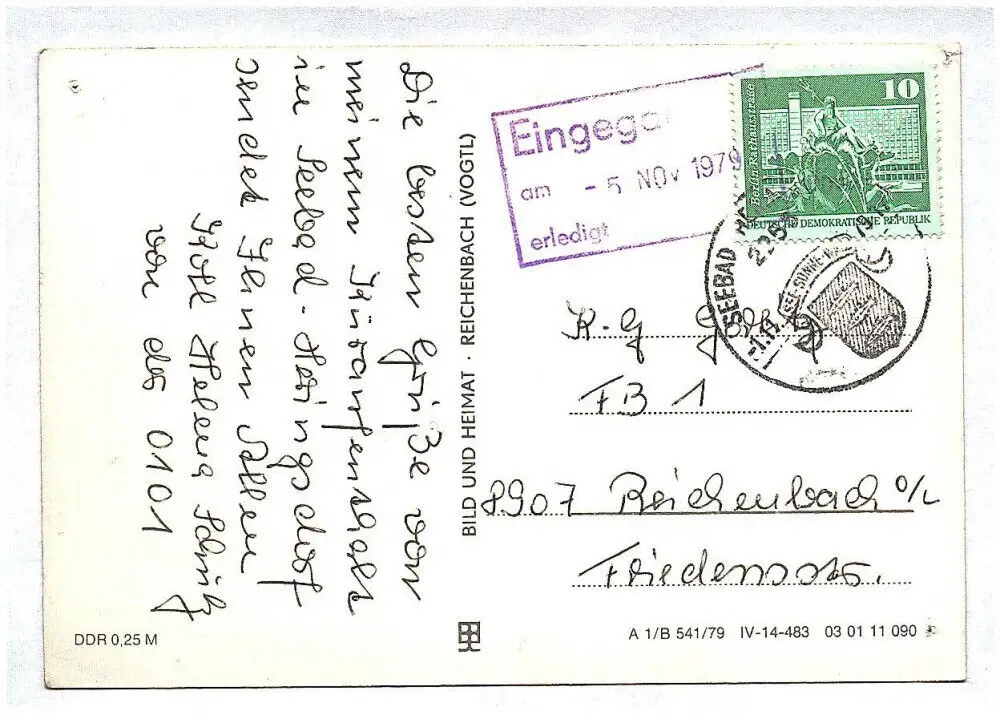 Die besten Grüße von
meinem Kuraufenthalt
in Seebad-Heringsdorf
sendet Ihnen Allen
Koll Helena Schulz
von der 0101
BILD UND HEIMAT · REICHENBACH (VOGTL)
Eingega
am - 5 NOV 1979
erledigt
10
Berlin, Rathausstraße
DEUTSCHE DEMOKRATISCHE REPUBLIK
SEEBAD
-1.11.
K-G
FB 1
8907 Reichenbach O/L
Friedensstr.
DDR 0,25 M
A 1/B 541/79 IV-14-483 03 01 11 090